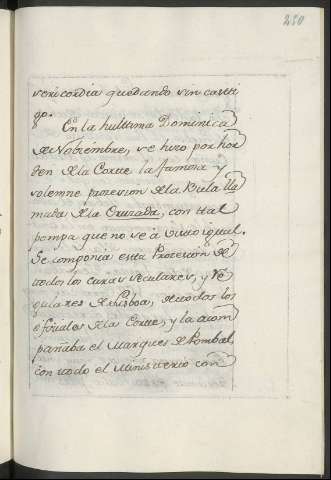 250
vericordia quedando sin casti
go.
En la hulttima Dominica
de Nobiembre, se hizo por hor
den de la Cortte la famosa y
solemne prozesion de la Bula lla
mada de la Cruzada, con ttal
pompa que no se â visto igual.
Se componia estta Prozesion de
todos los curas seculares, y Re
gulares de Lisboa, de todos los
ofiziales de la Cortte, y la acom
pañaba el Marques de Pombal
con todo el Ministerio con